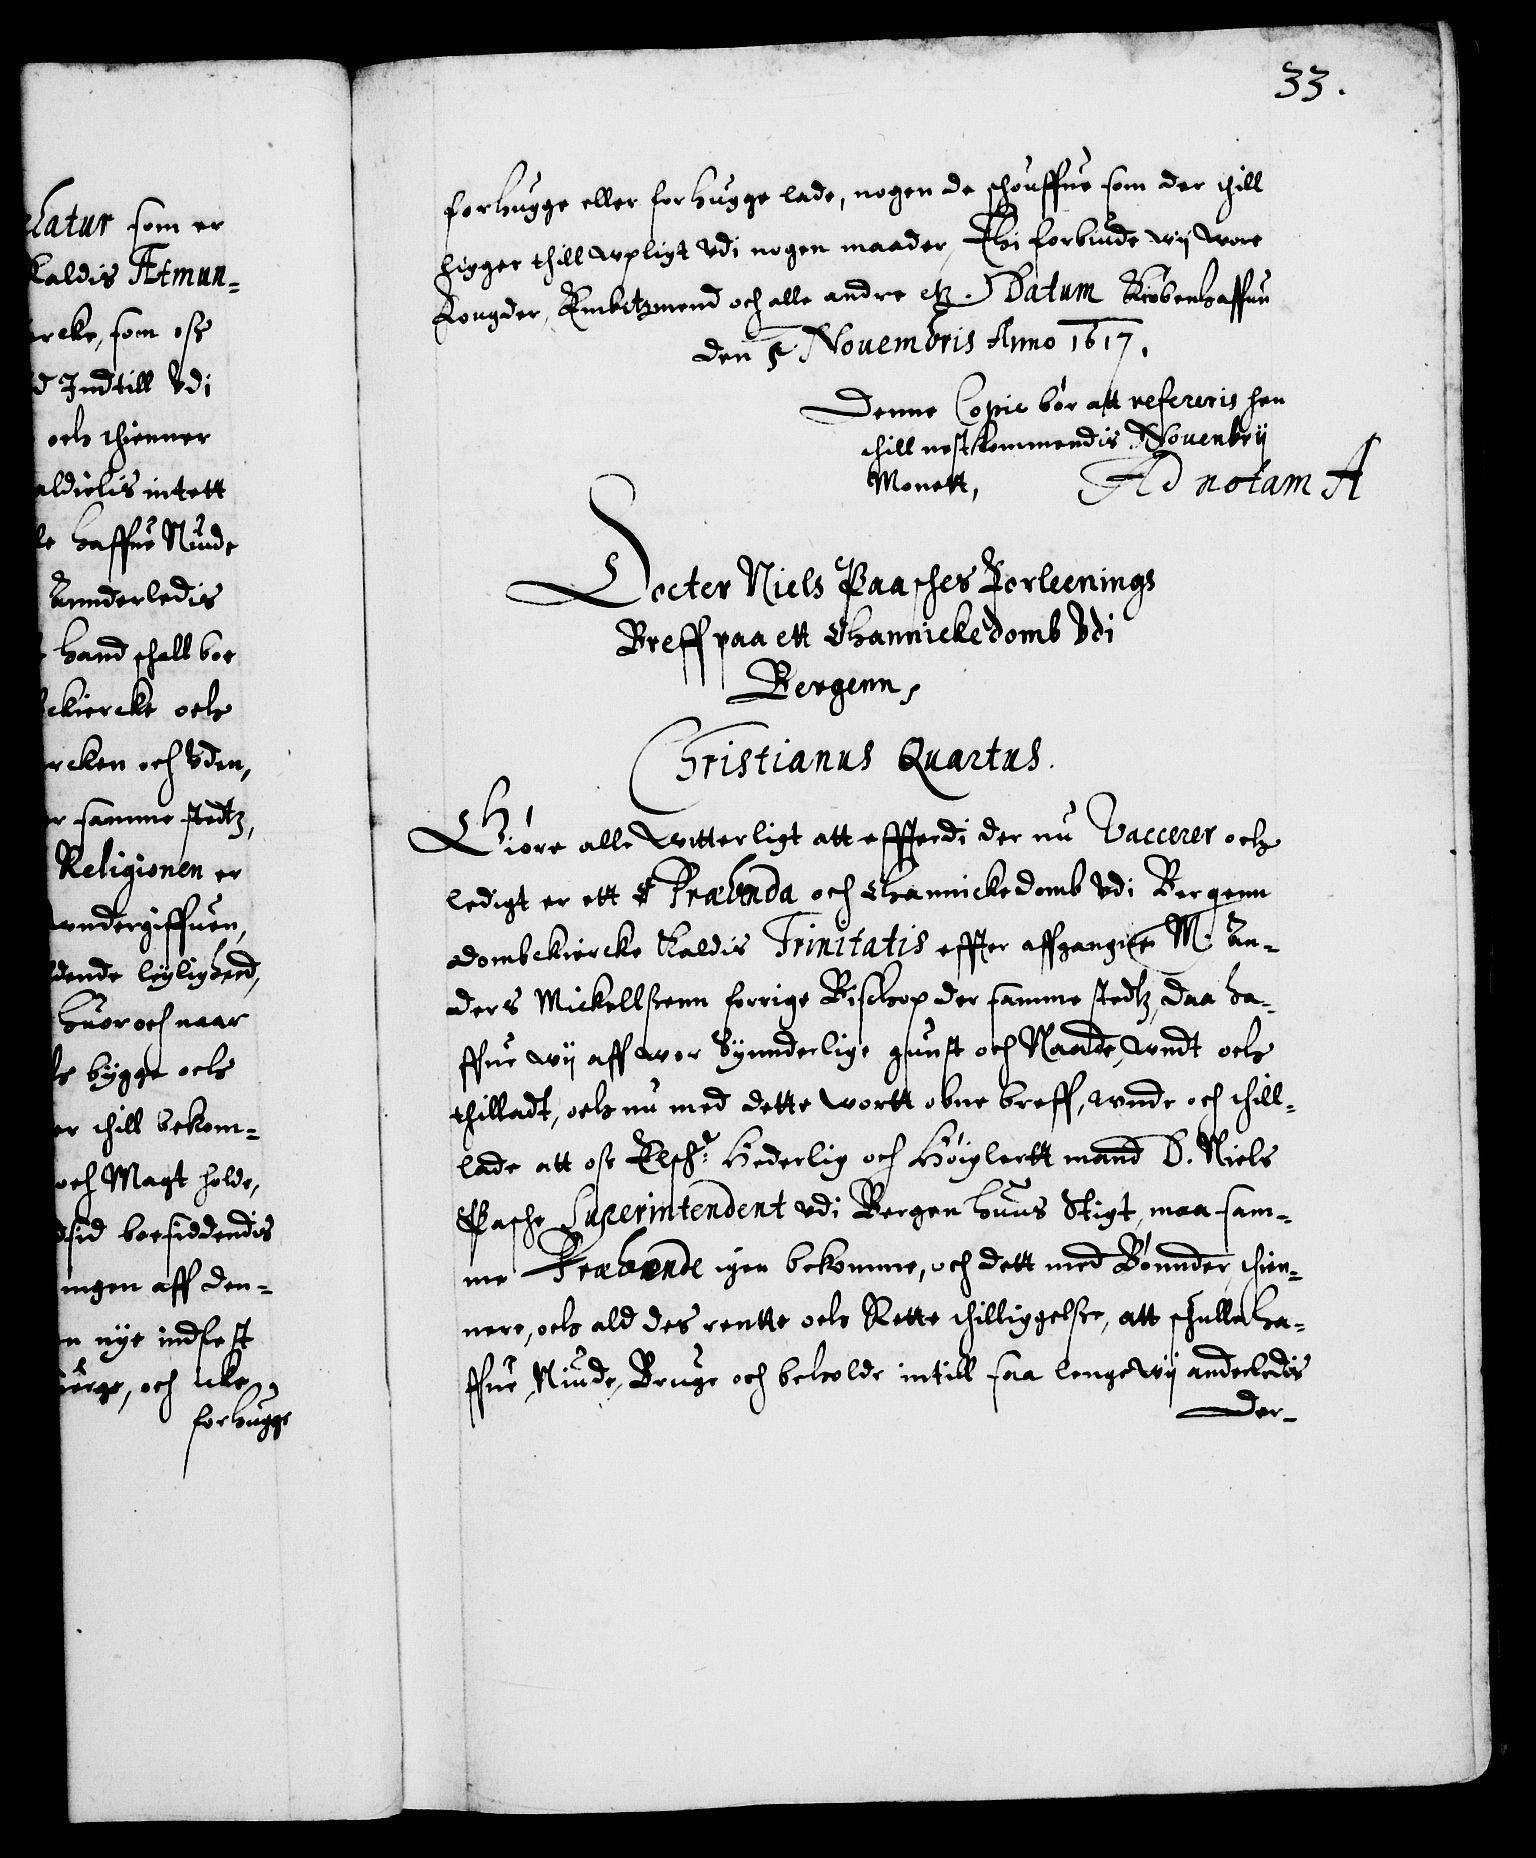 latur som er
kaldis Atmun-
ercke, som oss
d Indtill Udi
och thienner
aldielis intett
le haffue Niude
Annderledis
hand schall boe
ekiercke och
ercken och Uden,
er samme stedtz,
Religionen er
wndergiffuen,
dende leyligheed,
huor och naar
ls bygge och
er thill bekom-
och Magt holde,
dsid boesiddendis
ingen aff den-
en nye indfest
uerge, och icke
forhugge
33.
forhugge eller forhugge lade, nogen de schouffue som der thill
ligger thill wpligt Udi nogen maader, Thi forbiude wij wore
Fougder, Embitzmend och alle andre etz. Datum Kiøbenhaffnn
den 5 Nouembris Anno 1617.
Denne Copie bør att refereris hen
thill nestkommendis Nouenbrij
Monett,
Ad notam A
Docter Niels Paasches Forleenings
Breff paa ett Channickedomb Udi
Bergenn,
Christianus Quartus.
Giøre alle witterligt att effterdi der nu Vaccerer och
ledigt er ett Præbenda och Channickedomb Udi Bergenn
dombekiercke kaldis Trinitatis effter affgangne M. An-
ders Mickellssenn forrige Bischop der samme stedtz, daa ha-
ffue wij aff wor Synnderlige gunst och Naade, wndt och
thilladt, och nu med dette wortt obne breff, wnde och thill-
lade att oss Elsch: Hederlig och Høiglertt mand D. Niels
Pasche Superintendent udi Bergenhuus Stigt, maa sam-
me Præbende igen bekomme, och dett med Bønnder, thien-
nere, och ald des rentte och Rette thilliggelsse, att schulle ha-
ffue, Niude, Bruge och beholde intill saa lenge Wij anderledis
der-